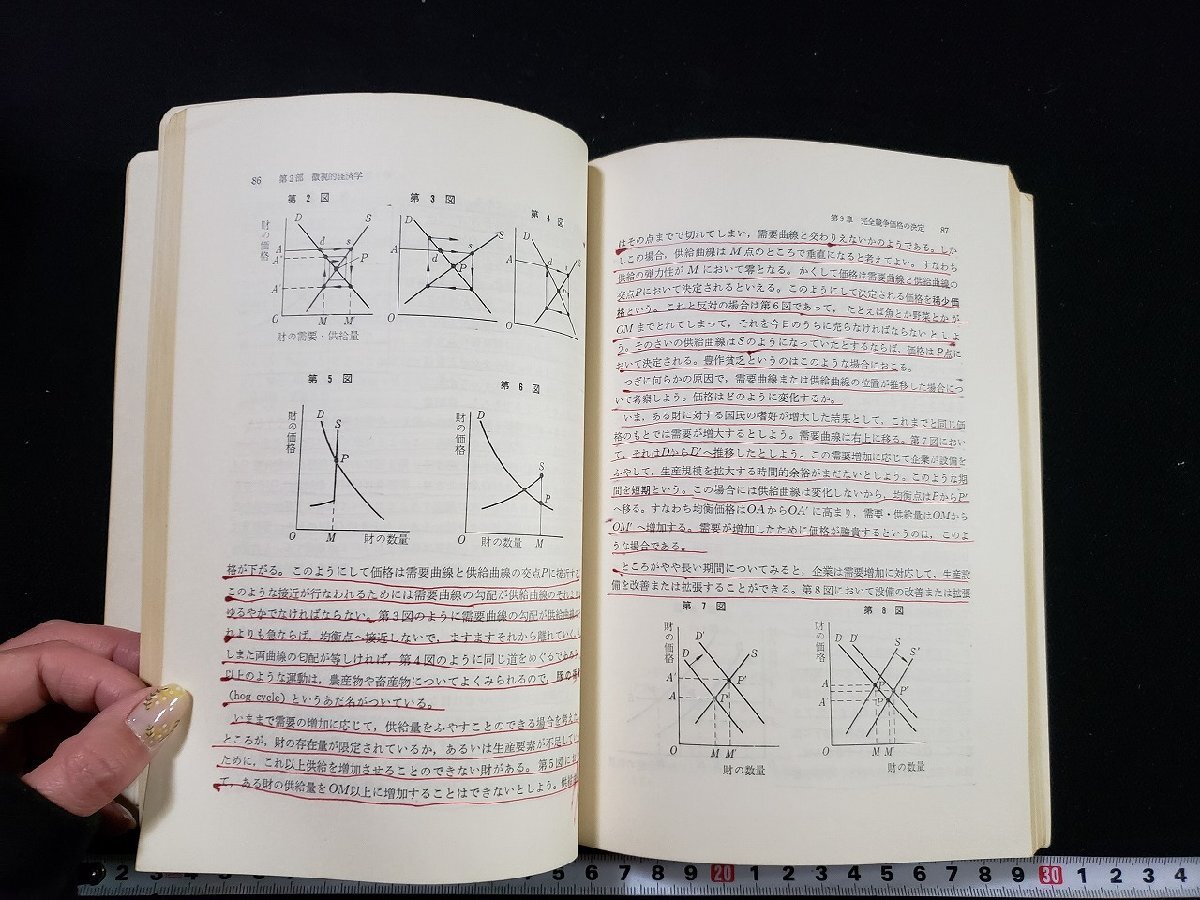 86 第2部 微視的経済学
第2図
第3図
第4図
財の価格
D
S
A
d
s
P
M
M
財の需要・供給量
D
S
A
d
s
P
O
D
S
A
d
s
O
第5図
第6図
財の価格
D
S
P
O
M
財の数量
財の価格
D
S
P
O
M
財の数量
格が下がる。このようにして価格は需要曲線と供給曲線の交点Pに接近する
このような接近が行なわれるためには需要曲線の勾配が供給曲線のそれよ
ゆるやかでなければならない。第3図のように需要曲線の勾配が供給曲線
れよりも急ならば,均衡点へ接近しないで,ますますそれから離れていく。
しまた両曲線の勾配が等しければ,第4図のように同じ道をめぐるであろう
以上のような運動は,農産物や畜産物についてよくみられるので,豚の
(hog cycle)というあだ名がついている。
いままで需要の増加に応じて,供給量をふやすことのできる場合を考えた
ところが,財の存在量が限定されているか,あるいは生産要素が不足してい
ために,これ以上供給を増加させることのできない財がある。第5図にお
て,ある財の供給量をOM以上に増加することはできないとしよう。供給
第9章 完全競争価格の決定 87
はその点までで切れてしまい,需要曲線と交わりえないかのようである。しか
しこの場合,供給曲線はM点のところで垂直になると考えてよい。すなわち
供給の弾力性がMにおいて零となる。かくして価格は需要曲線と供給曲線の
交点Pにおいて決定されるといえる。このようにして決定される価格を稀少価
格という。これと反対の場合は第6図であって,たとえば魚とか野菜とかが
OMまでとれてしまって,これを今日のうちに売らなければならないとしよ
う。そのさいの供給曲線はSのようになっていたとするならば,価格はP点に
おいて決定される。豊作貧乏というのはこのような場合におこる。
つぎに何らかの原因で,需要曲線または供給曲線の位置が推移した場合につ
いて考察しよう。価格はどのように変化するか。
いま,ある財に対する国民の嗜好が増大した結果として,これまでと同じ価
格のもとでは需要が増大するとしよう。需要曲線は右上に移る。第7図におい
て,それはDからD'へ推移したとしよう。この需要増加に応じて企業が設備を
ふやして,生産規模を拡大する時間的余裕がまだないとしよう。このような期
間を短期という。この場合には供給曲線は変化しないから,均衡点はPからP'
へ移る。すなわち均衡価格はOAからOA'に高まり,需要・供給量はOMから
OM'へ増加する。需要が増加したために価格が騰貴するというのは,このよ
うな場合である。
ところがやや長い期間についてみると,企業は需要増加に対応して,生産設
備を改善または拡張することができる。第8図において設備の改善または拡張
第7図
第8図
財の価格
D'
D
S
A'
A
P'
P
O
M M'
財の数量
財の価格
D D'
S
S'
A
A
P'
O
財の数量
2 3 4 5 6 7 8 9 20 1 2 3 4 5 6 7 8 9 30 1 2 3 4